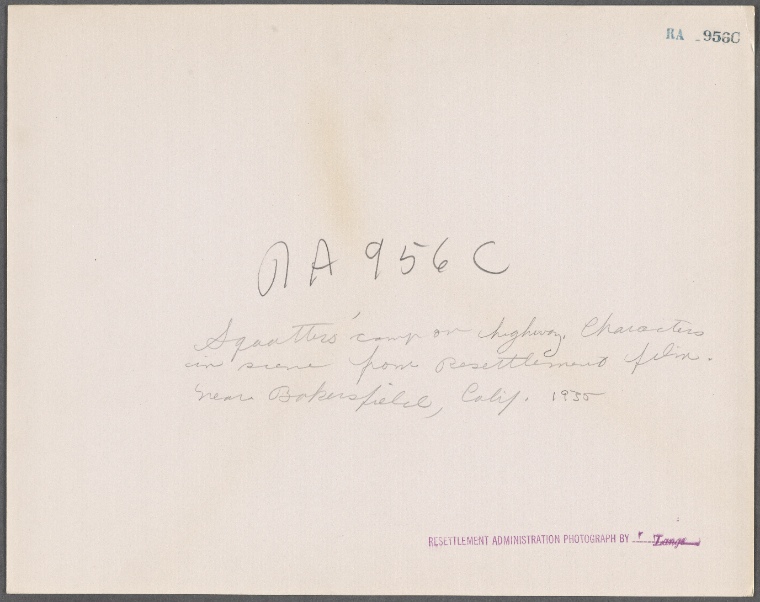 RA 956C
RA 956C
Squatters' camp on highway. Characters
in scene from Resettlement film.
Near Bakersfield, Calif. 1935
RESETTLEMENT ADMINISTRATION PHOTOGRAPH BY Lange